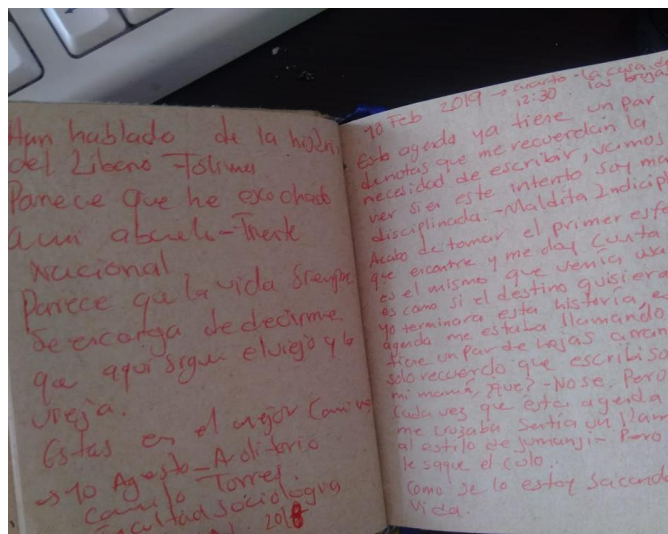 Han hablado de la
del Libano - Tolima
Parece que he escuchado
a mi abuelo - Frente
Nacional
Parece que la vida siempre
se encarga de decirme
que aqui sigue el viejo y la
vieja.
Estas en el mejor camino
→ 10 Agosto - Auditorio
Camilo Torres.
Facultad sociologia
2018
10 Feb 2019 → cuarto - la casa de
12:30. las brujas
Esta agenda ya tiene un par
de notas que me recuerdan la
necesidad de escribir, veamos
ver si en este intento soy mas
disciplinada. - Maldita Indicipl
Acabo de tomar el primer esfe
que encontre y me doy cuenta
es el mismo que venia usa
es como si el destino quisiera
yo terminara esta historia, e
agenda me estaba llamando
tiene un par de hojas arran
solo recuerdo que escribi so
mi mamá, ¿que? - No se. Pero
Cada vez que esta agenda
me cruzaba sentia un llam
al estilo de Jumanji - Pero
le saque el culo.
Como se lo estoy sacando
vida.